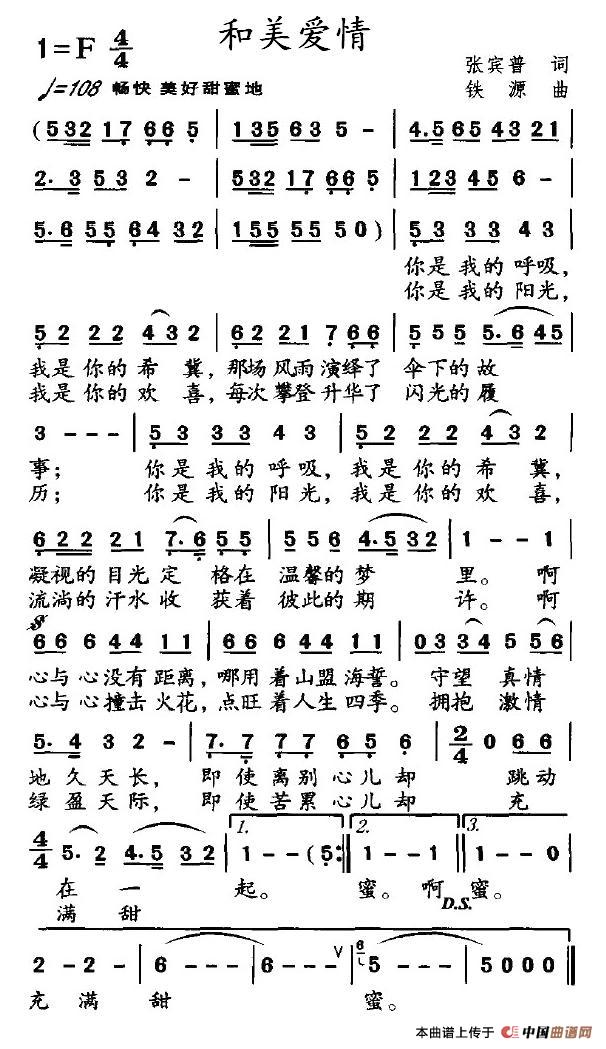 和美爱情
1=F 4/4
张宾普 词
♩=108 畅快 美好甜蜜地
铁源 曲
(532 17 66 5 | 135 63 5 - | 4.5 65 43 21 |
2. 3 53 2 - | 532 17 66 5 | 123 45 6 - |
5. 6 55 64 32 | 155 55 50) | 53 33 43 |
你是我的呼吸,
你是我的阳光,
52 22 432 | 62 21 7 66 | 5 55 5.6 45 |
我是你的希冀,那场风雨演绎了 伞下的故
我是你的欢喜,每次攀登升华了 闪光的履
3 - - - | 53 33 43 | 52 22 432 |
事; 你是我的呼吸,我是你的希冀,
历; 你是我的阳光,我是你的欢喜,
622 21 7.6 55 | 556 4.532 | 1 - - 1 |
凝视的目光定格在 温馨的梦 里。啊
流淌的汗水收获着 彼此的期 许。啊
66 644 11 | 66 644 11 | 0334 556 |
心与心没有距离,哪用着山盟海誓。守望 真情
心与心撞击火花,点旺着人生四季。拥抱 激情
5. 4 32 - | 7. 7 77 65 6 | 2/4 0 66 |
地久天长,即使离别心儿却 跳动
绿盈天际,即使苦累心儿却 充
4/4 5. 2 4.5 32 | 1. 1 - - (5 :| 2. 1 - - 1 | 3. 1 - - 0 |
在一 起。 蜜。啊 蜜。
满甜 D.S.
2 - 2 - | 6 - - 6 | 6 - - - ∨ | 6 5 - - - | 5 0 0 0 ‖
充 满 甜 蜜。
本曲谱上传于 中国曲谱网